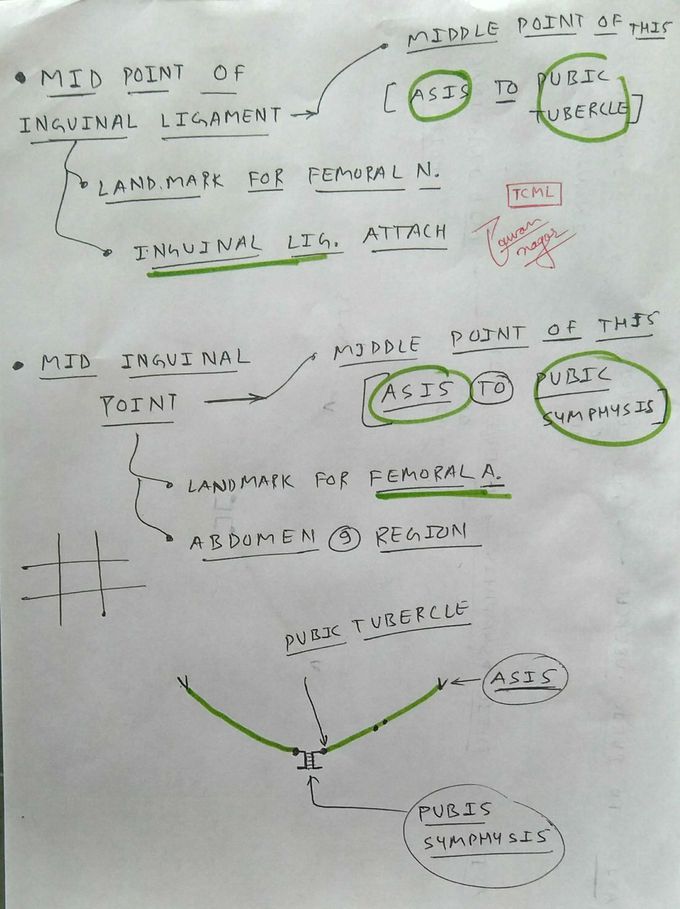 MIDDLE POINT OF THIS
• MID POINT OF
[ ASIS TO PUBIC
INGUINAL LIGAMENT →
TUBERCLE ]
LAND.MARK FOR FEMORAL N.
TCML
INGUINAL LIG. ATTACH
nagar
• MID INGUINAL
MIDDLE POINT OF THIS
POINT →
[ ASIS TO PUBIC
SYMPHYSIS ]
LANDMARK FOR FEMORAL A.
ABDOMEN 9 REGION
PUBIC TUBERCLE
ASIS
PUBIS
SYMPHYSIS